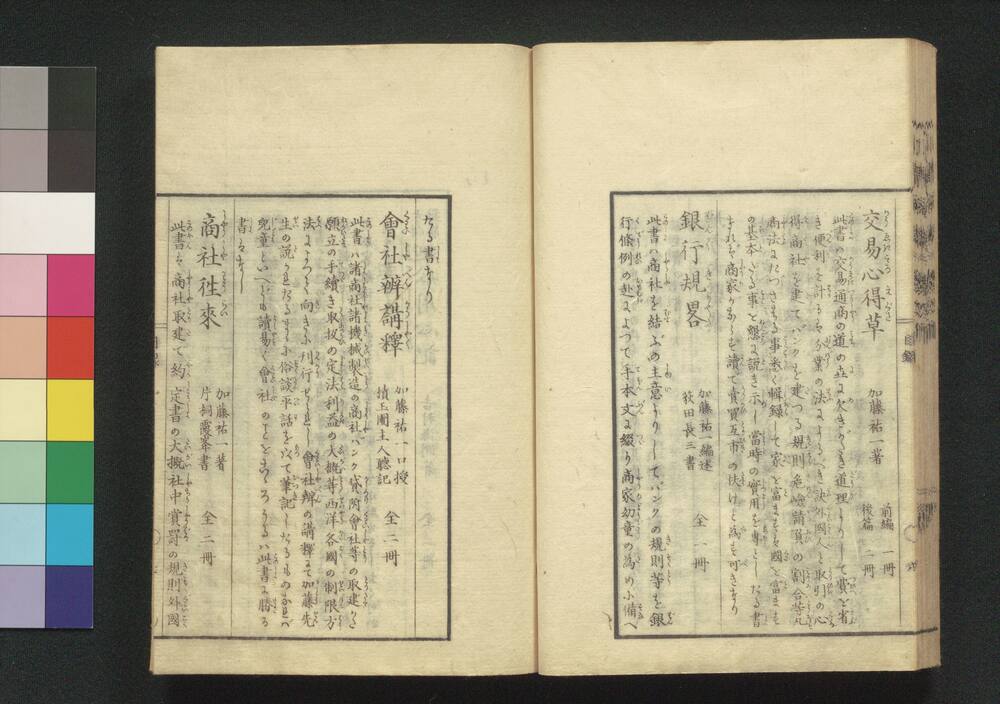 交易心得草
加藤祐一著
前編 一冊
後篇 二冊
此書ハ交易通商の道の立て欠きがたき道理よりして費を省
き便利を計るも分業の法によるべき訣外國人と取引の心
得商社を建てバンクを建つる規則危險請負の割合等凡
商法にたづさはる事悉く輯録して家を富まし國を富ます
の基本なる事と懇に説き示し當時の實用を專としたる書
なれバ商家かならず讀て賣買互市の扶けと為す可きなり
銀行規畧
加藤祐一編述
荻田長三書
全一冊
此書ハ商社を結ぶの主意よりしてバンクの規則等を銀
行條例の赴によつて手本文に綴り商家幼童の為め小備へ
たる書なり
會社辨講釋
加藤祐一口授
積玉圃主人聽記
全二冊
此書ハ諸商社諸機械製造の商社バンク貸附會社等の取建かた
願立の手續き取扱の定法利益の大概等西洋各國の制限方
法によつて向きに刊行されし會社辨の講釋にて加藤先
生の説かれたるまゝ小俗談平話を以て筆記したるものなれバ
兒童といへども讀易く會社のことをこゝろうるハ此書に勝る
書ハなし
商社往來
加藤祐一著
片桐霞峯書
全二冊
此書ハ商社取建て約定書の大概社中賞罰の規則外國
目録